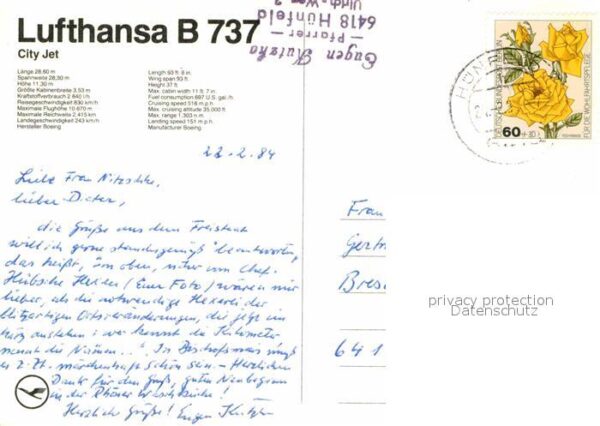 Lufthansa B 737
City Jet
Länge 28,60 m
Spannweite 28,30 m
Höhe 11,30 m
Größte Kabinenbreite 3,53 m
Kraftstoffverbrauch 2.640 l/h
Reisegeschwindigkeit 830 km/h
Maximale Flughöhe 10.670 m
Maximale Reichweite 2.415 km
Landegeschwindigkeit 243 km/h
Hersteller Boeing
Length 93 ft. 8 in.
Wing span 93 ft.
Height 37 ft.
Max. cabin width 11 ft. 7 in.
Fuel consumption 697 U.S. gal./h
Cruising speed 516 m.p.h.
Max. cruising altitude 35.000 ft.
Max. range 1.303 n.m.
Landing speed 151 m.p.h.
Manufacturer Boeing
Eugen
— Pfarrer —
6418 Hünfeld
HÜNF
DEUTSCHE BUNDESPOST BERLIN
60
FÜR DIE WOHLFAHRTSPFLEGE
22.2.84
Liebe Frau Nitzschke,
lieber Dieter,
die Grüße aus dem Freistaat
will ich gerne standesgemäß beantworten,
das heißt, von oben,
Hübsche (Euer Foto) wären mir
lieber, als die notwendige Hexerei der
blitzartigen Ortsveränderungen, die jetzt in
wer kennt die Kilometer
nennt die Namen..". In Bischofsmais muß
es z.Zt. märchenhaft schön sein – Herzlichen
Dank für den Gruß, guten
in der
Herzliche Grüße! Eugen
Frau
Gertr
Bres
641
privacy protection
Datenschutz